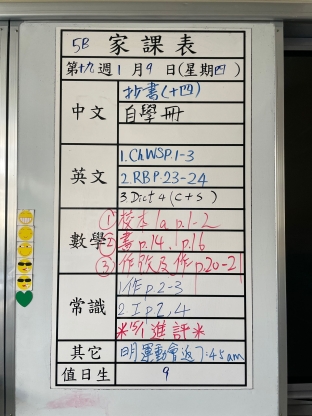 5B 家課表
第十九週 1月9日(星期四)
中文
抄書(十四)
自學冊
英文
1. Ch WS P.1-3
2. RB P.23-24
3 Dict 4 (C+S)
數學
① 校本1a p.1-2
② 書p.14, p.16
③ 作改及作p.20-21
常識
1 作p2-3
2 工p2,4
*15/1 進評*
其它
明運動會返7:45am
值日生
9